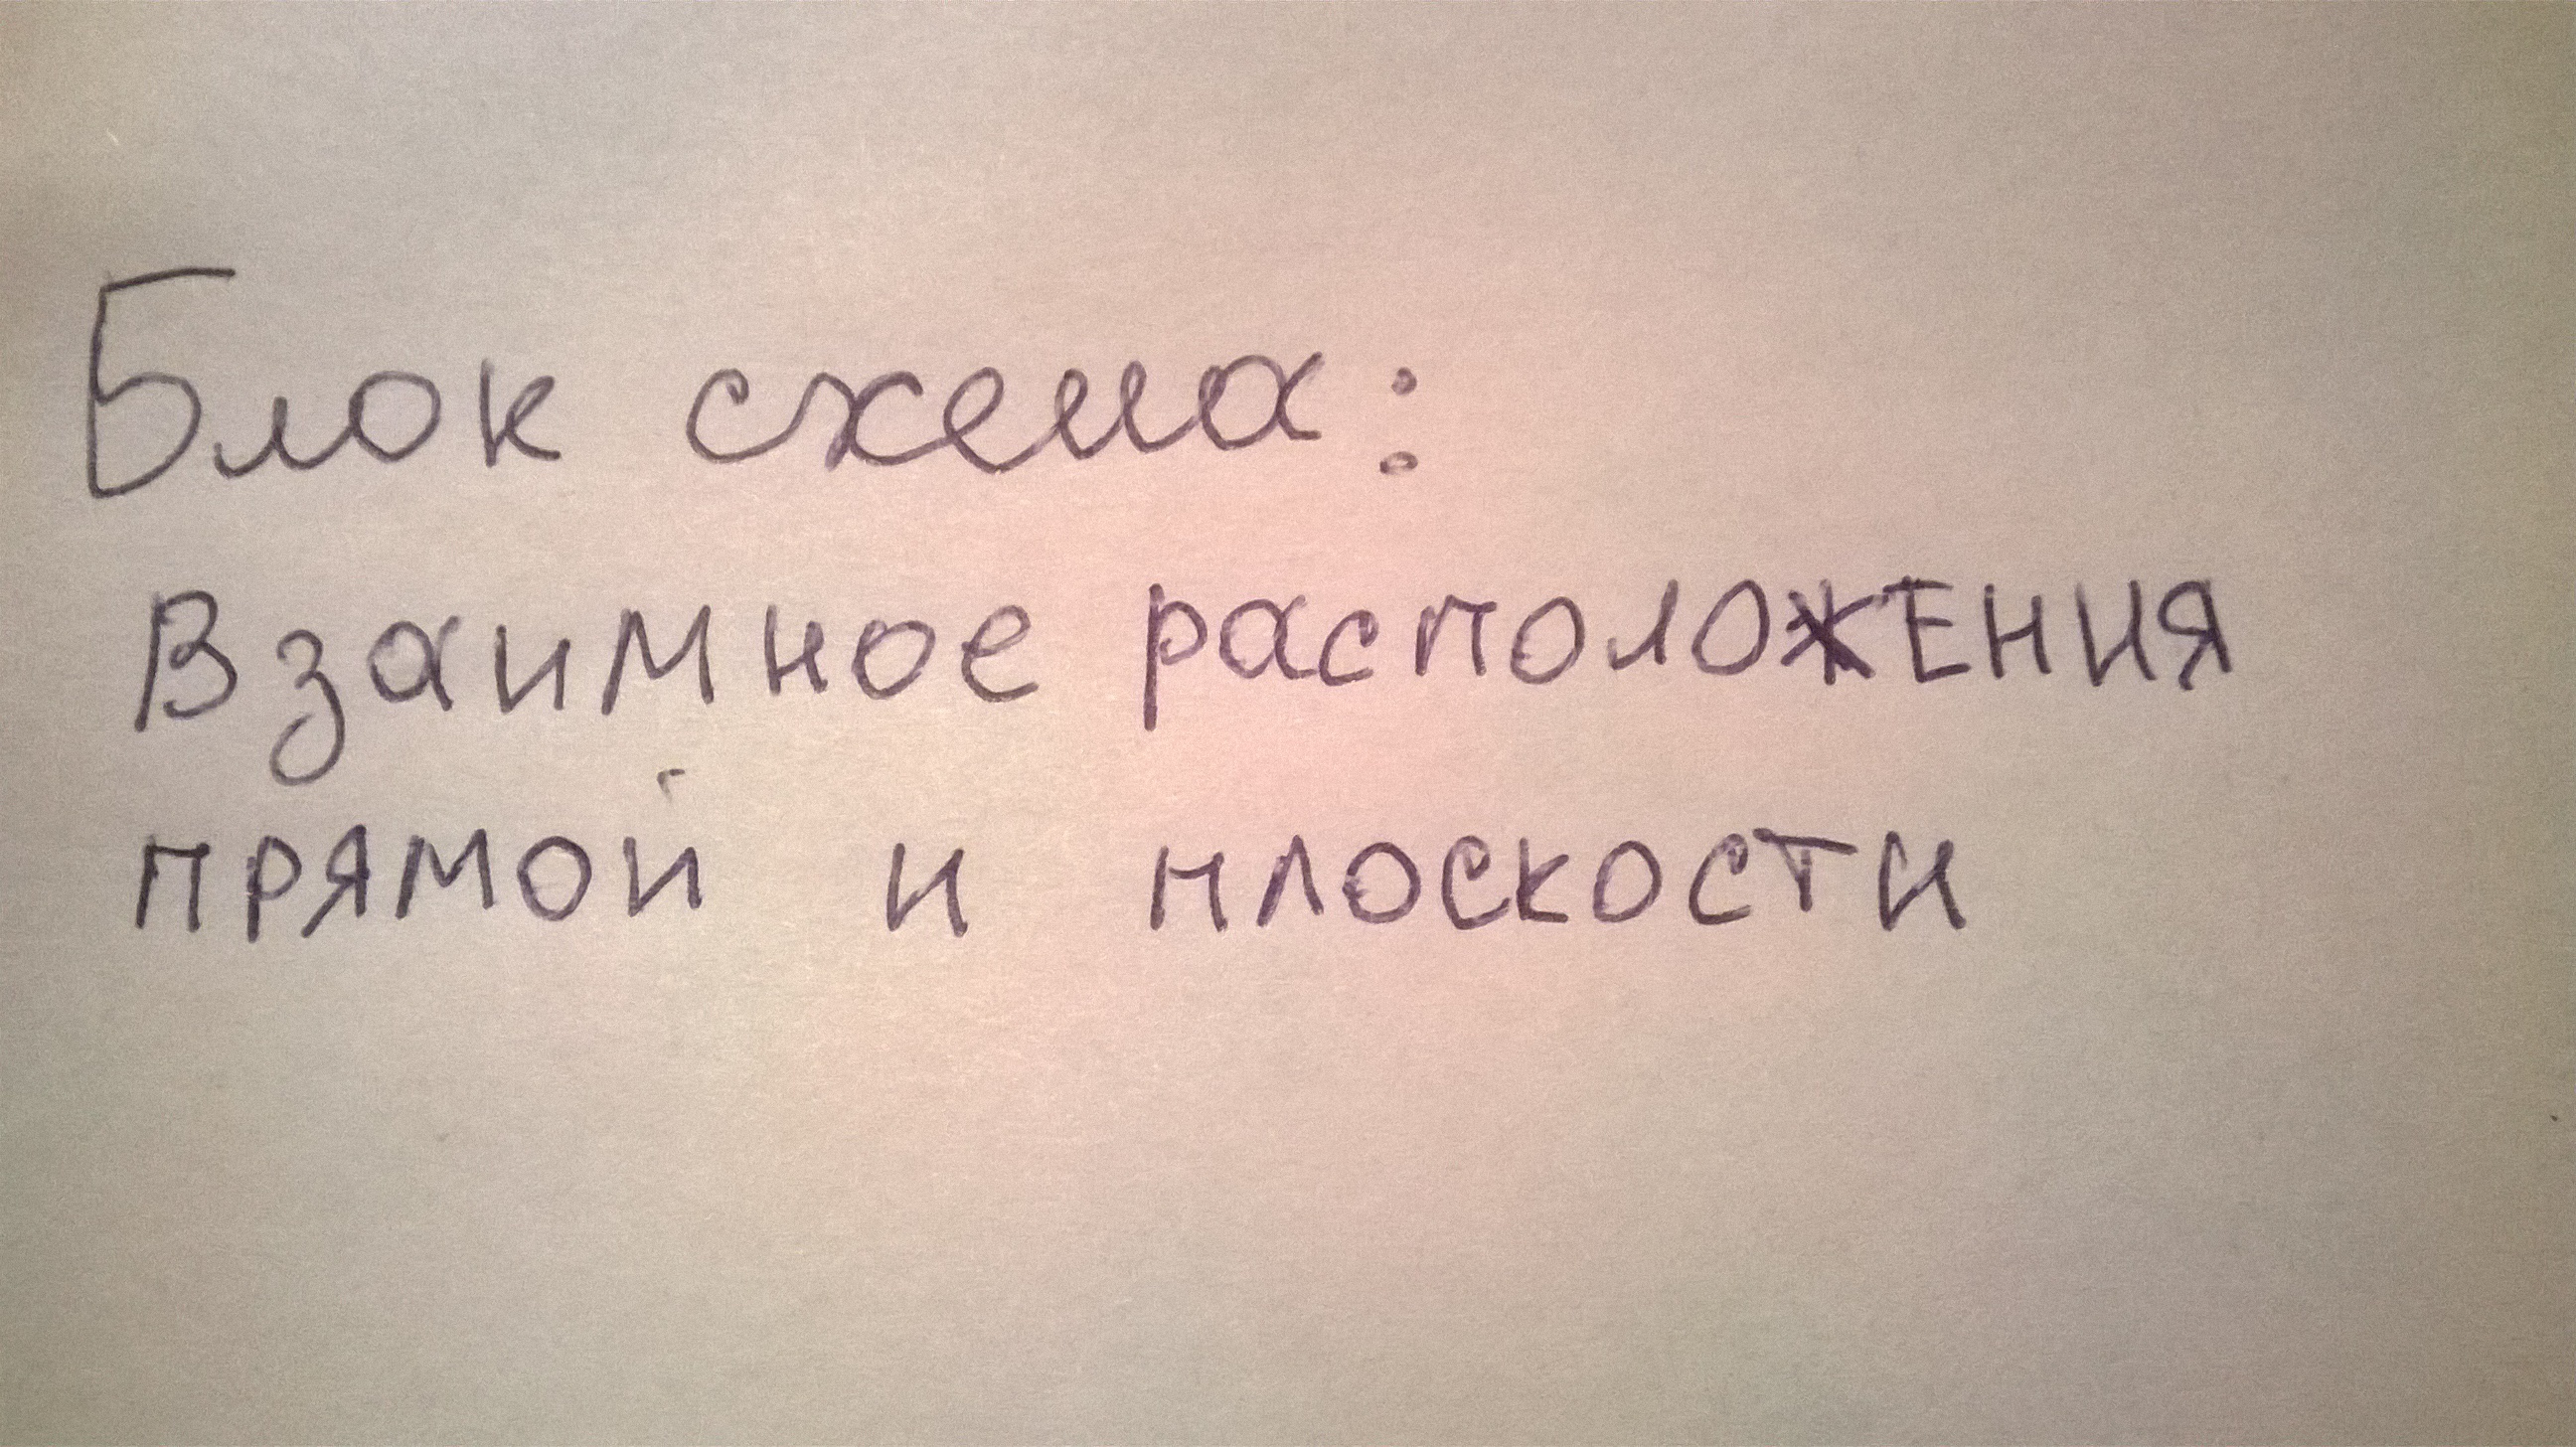 Блок схема:
Взаимное расположЕния
прямой и плоскости